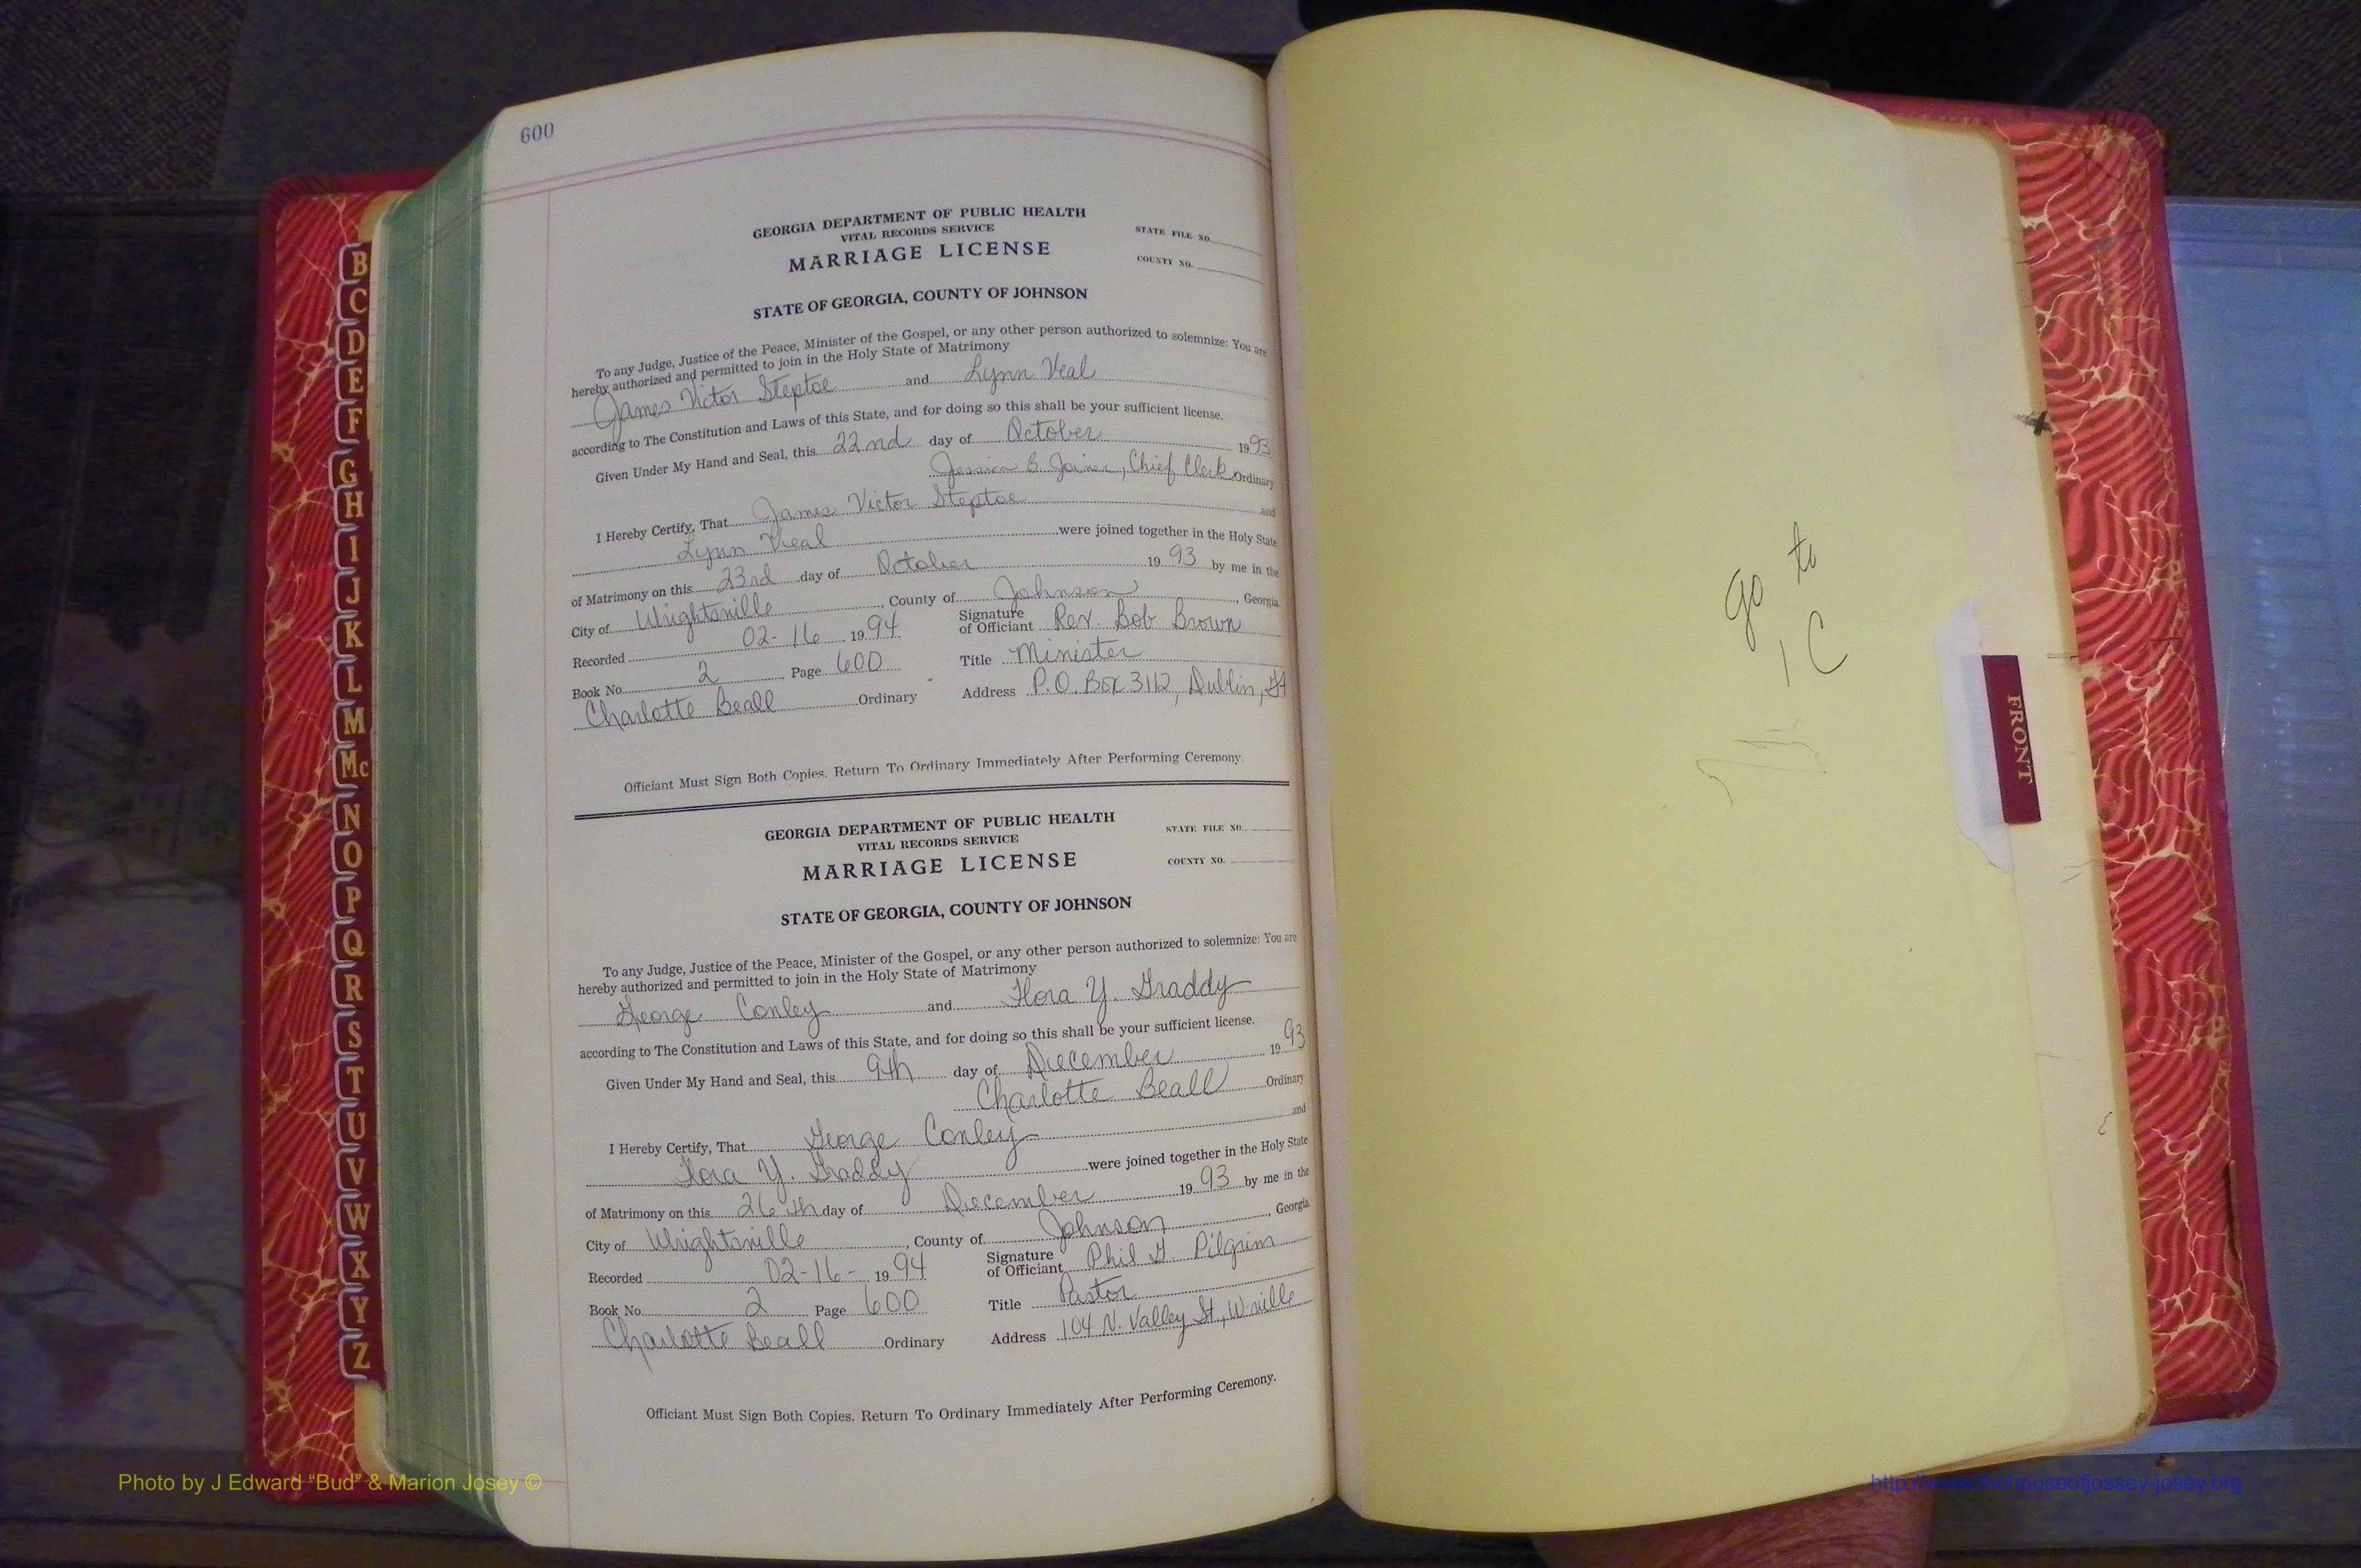 600
GEORGIA DEPARTMENT OF PUBLIC HEALTH
VITAL RECORDS SERVICE
MARRIAGE LICENSE
STATE FILE NO.
COUNTY NO.
STATE OF GEORGIA, COUNTY OF JOHNSON
To any Judge, Justice of the Peace, Minister of the Gospel, or any other person authorized to solemnize: You are
hereby authorized and permitted to join in the Holy State of Matrimony
James Victor Steptoe and Lynn Veal
according to The Constitution and Laws of this State, and for doing so this shall be your sufficient license.
Given Under My Hand and Seal, this 22nd day of October 1993
Jessica B. Joiner, Chief Clerk Ordinary
I Hereby Certify, That James Victor Steptoe and
Lynn Veal were joined together in the Holy State
of Matrimony on this 23rd day of October 19 93 by me in the
City of Wrightsville, County of Johnson, Georgia.
Recorded 02-16 19 94 Signature of Officiant Rev. Bob Brown
Book No. 2 Page 600 Title Minister
Charlotte Beall Ordinary Address P.O. Box 3112, Dublin, GA
Officiant Must Sign Both Copies. Return To Ordinary Immediately After Performing Ceremony.
GEORGIA DEPARTMENT OF PUBLIC HEALTH
VITAL RECORDS SERVICE
MARRIAGE LICENSE
STATE FILE NO.
COUNTY NO.
STATE OF GEORGIA, COUNTY OF JOHNSON
To any Judge, Justice of the Peace, Minister of the Gospel, or any other person authorized to solemnize: You are
hereby authorized and permitted to join in the Holy State of Matrimony
George Conley and Flora Y. Graddy
according to The Constitution and Laws of this State, and for doing so this shall be your sufficient license.
Given Under My Hand and Seal, this 9th day of December 19 93
Charlotte Beall Ordinary
I Hereby Certify, That George Conley and
Flora Y. Graddy were joined together in the Holy State
of Matrimony on this 26th day of December 19 93 by me in the
City of Wrightsville, County of Johnson, Georgia.
Recorded 02-16- 19 94 Signature of Officiant Phil G. Pilgrim
Book No. 2 Page 600 Title Pastor
Charlotte Beall Ordinary Address 104 N. Valley St., W-ville
Officiant Must Sign Both Copies. Return To Ordinary Immediately After Performing Ceremony.
go to
1 C
FRONT
B
C
D
E
F
G
H
I
J
K
L
M
Mc
N
O
P
Q
R
S
T
U
V
W
X
Y
Z
Photo by J Edward “Bud” & Marion Josey ©
http://www.thehouseofjossey-josey.org